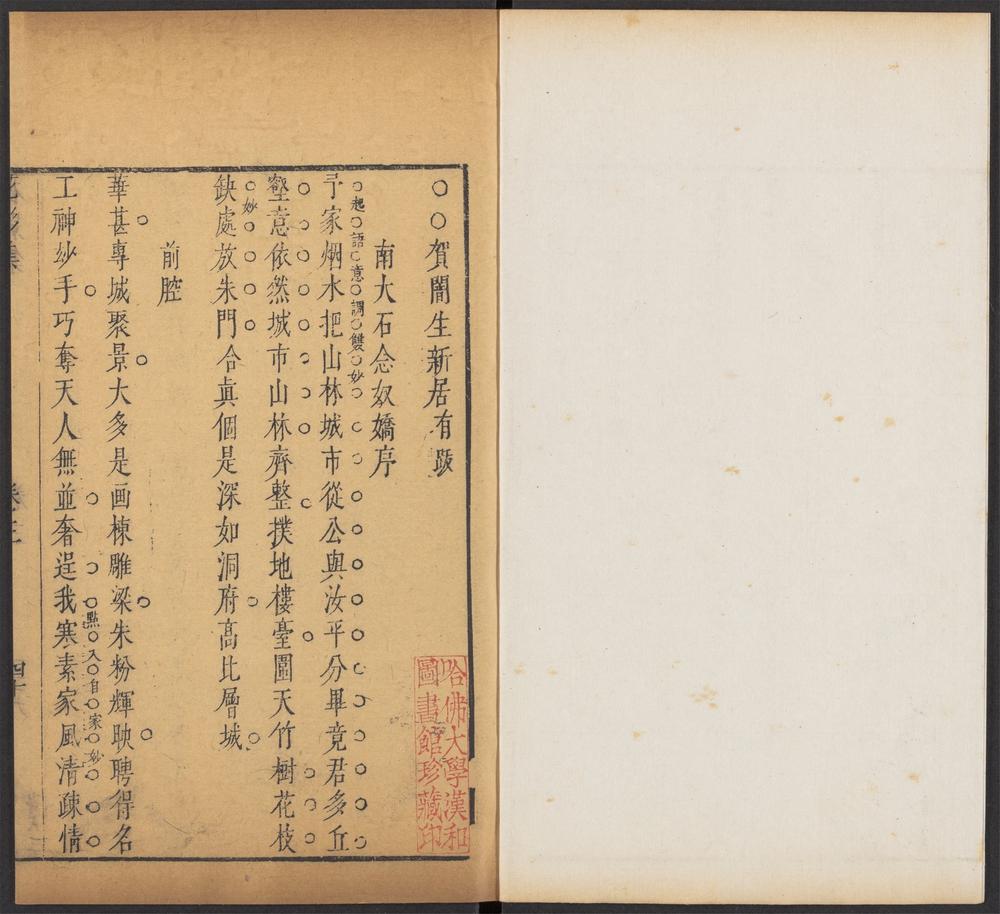 〇〇賀闇生新居有跋
南大石念奴嬌序
予家烟水把山林城市從公與汝平分畢竟君多丘
起語意調雙妙
壑意依然城市山林齊整撲地樓臺圍天竹樹花枝
缺處放朱門合真個是深如洞府高比層城
妙
前腔
華甚專城聚景大多是画棟雕梁朱粉輝映聘得名
工神妙手巧奪天人無並奢逞我寒素家風清疎情
點入自家妙
卷三
四十
哈佛大學漢和
圖書館珍藏印